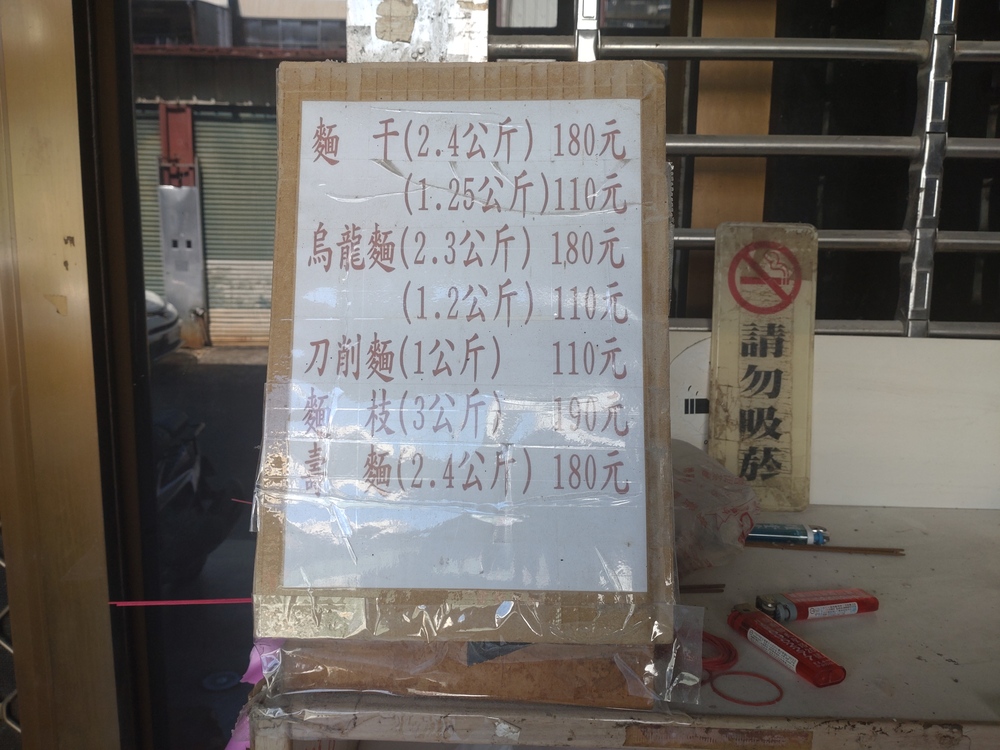 麵 干(2.4公斤) 180元
(1.25公斤)110元
烏龍麵(2.3公斤) 180元
(1.2公斤) 110元
刀削麵(1公斤) 110元
麵 枝(3公斤) 190元
壽 麵(2.4公斤) 180元
請勿吸菸